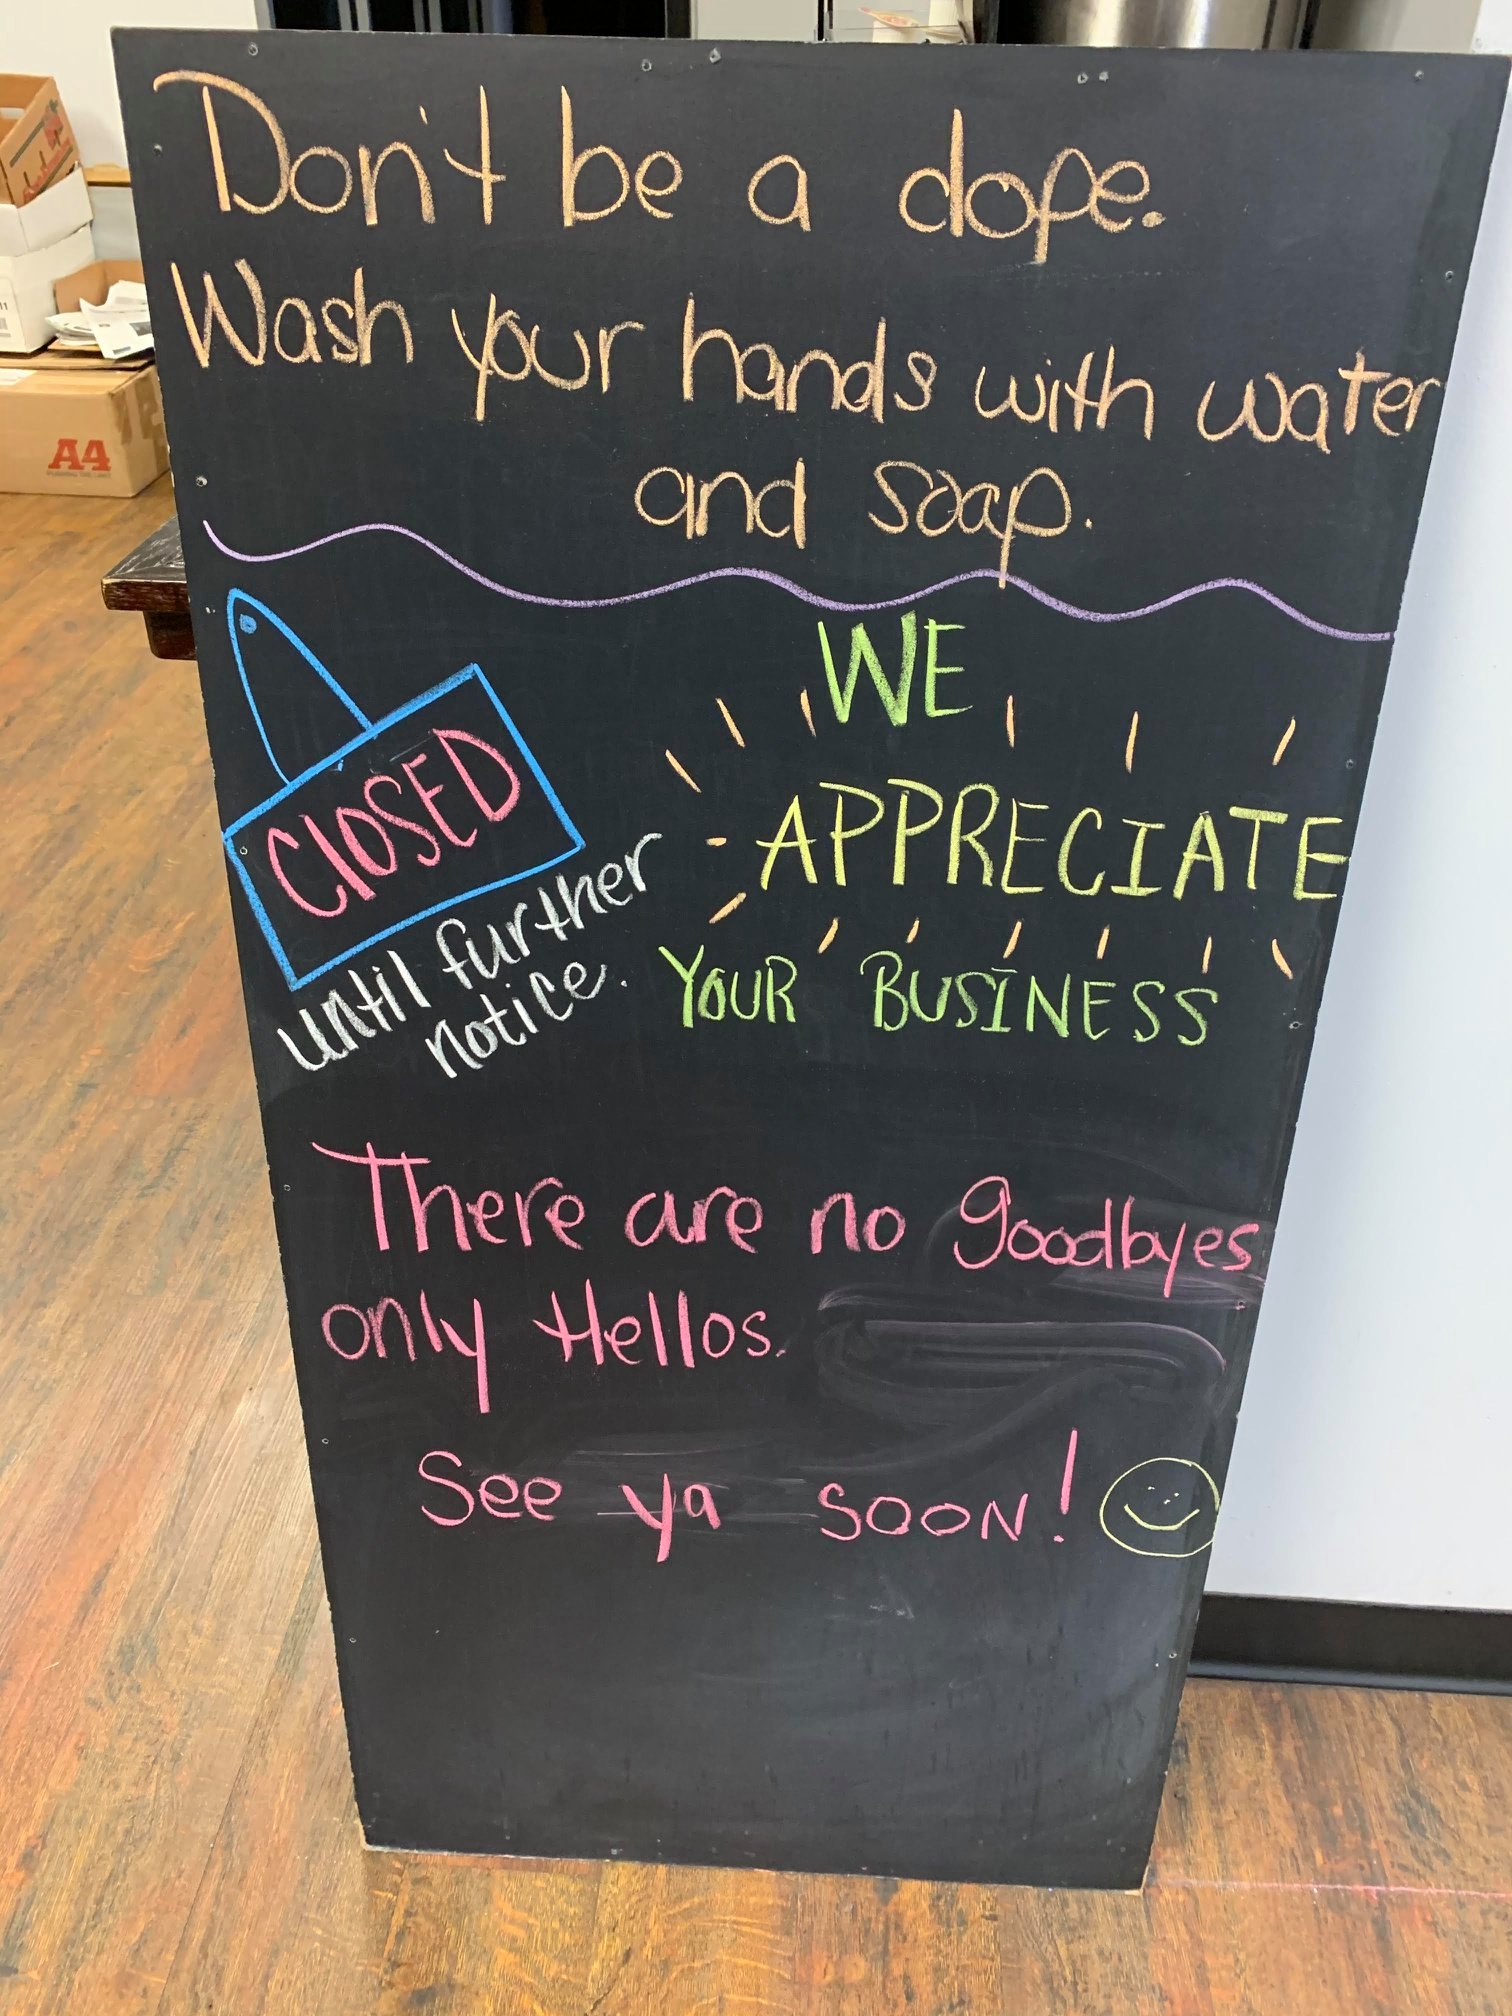 Don't be a dope.
Wash your hands with water
and soap.
ClOSED
until further
notice.
WE
APPRECIATE
YOUR BUSINESS
There are no goodbyes
only Hellos.
See ya soon!
A4